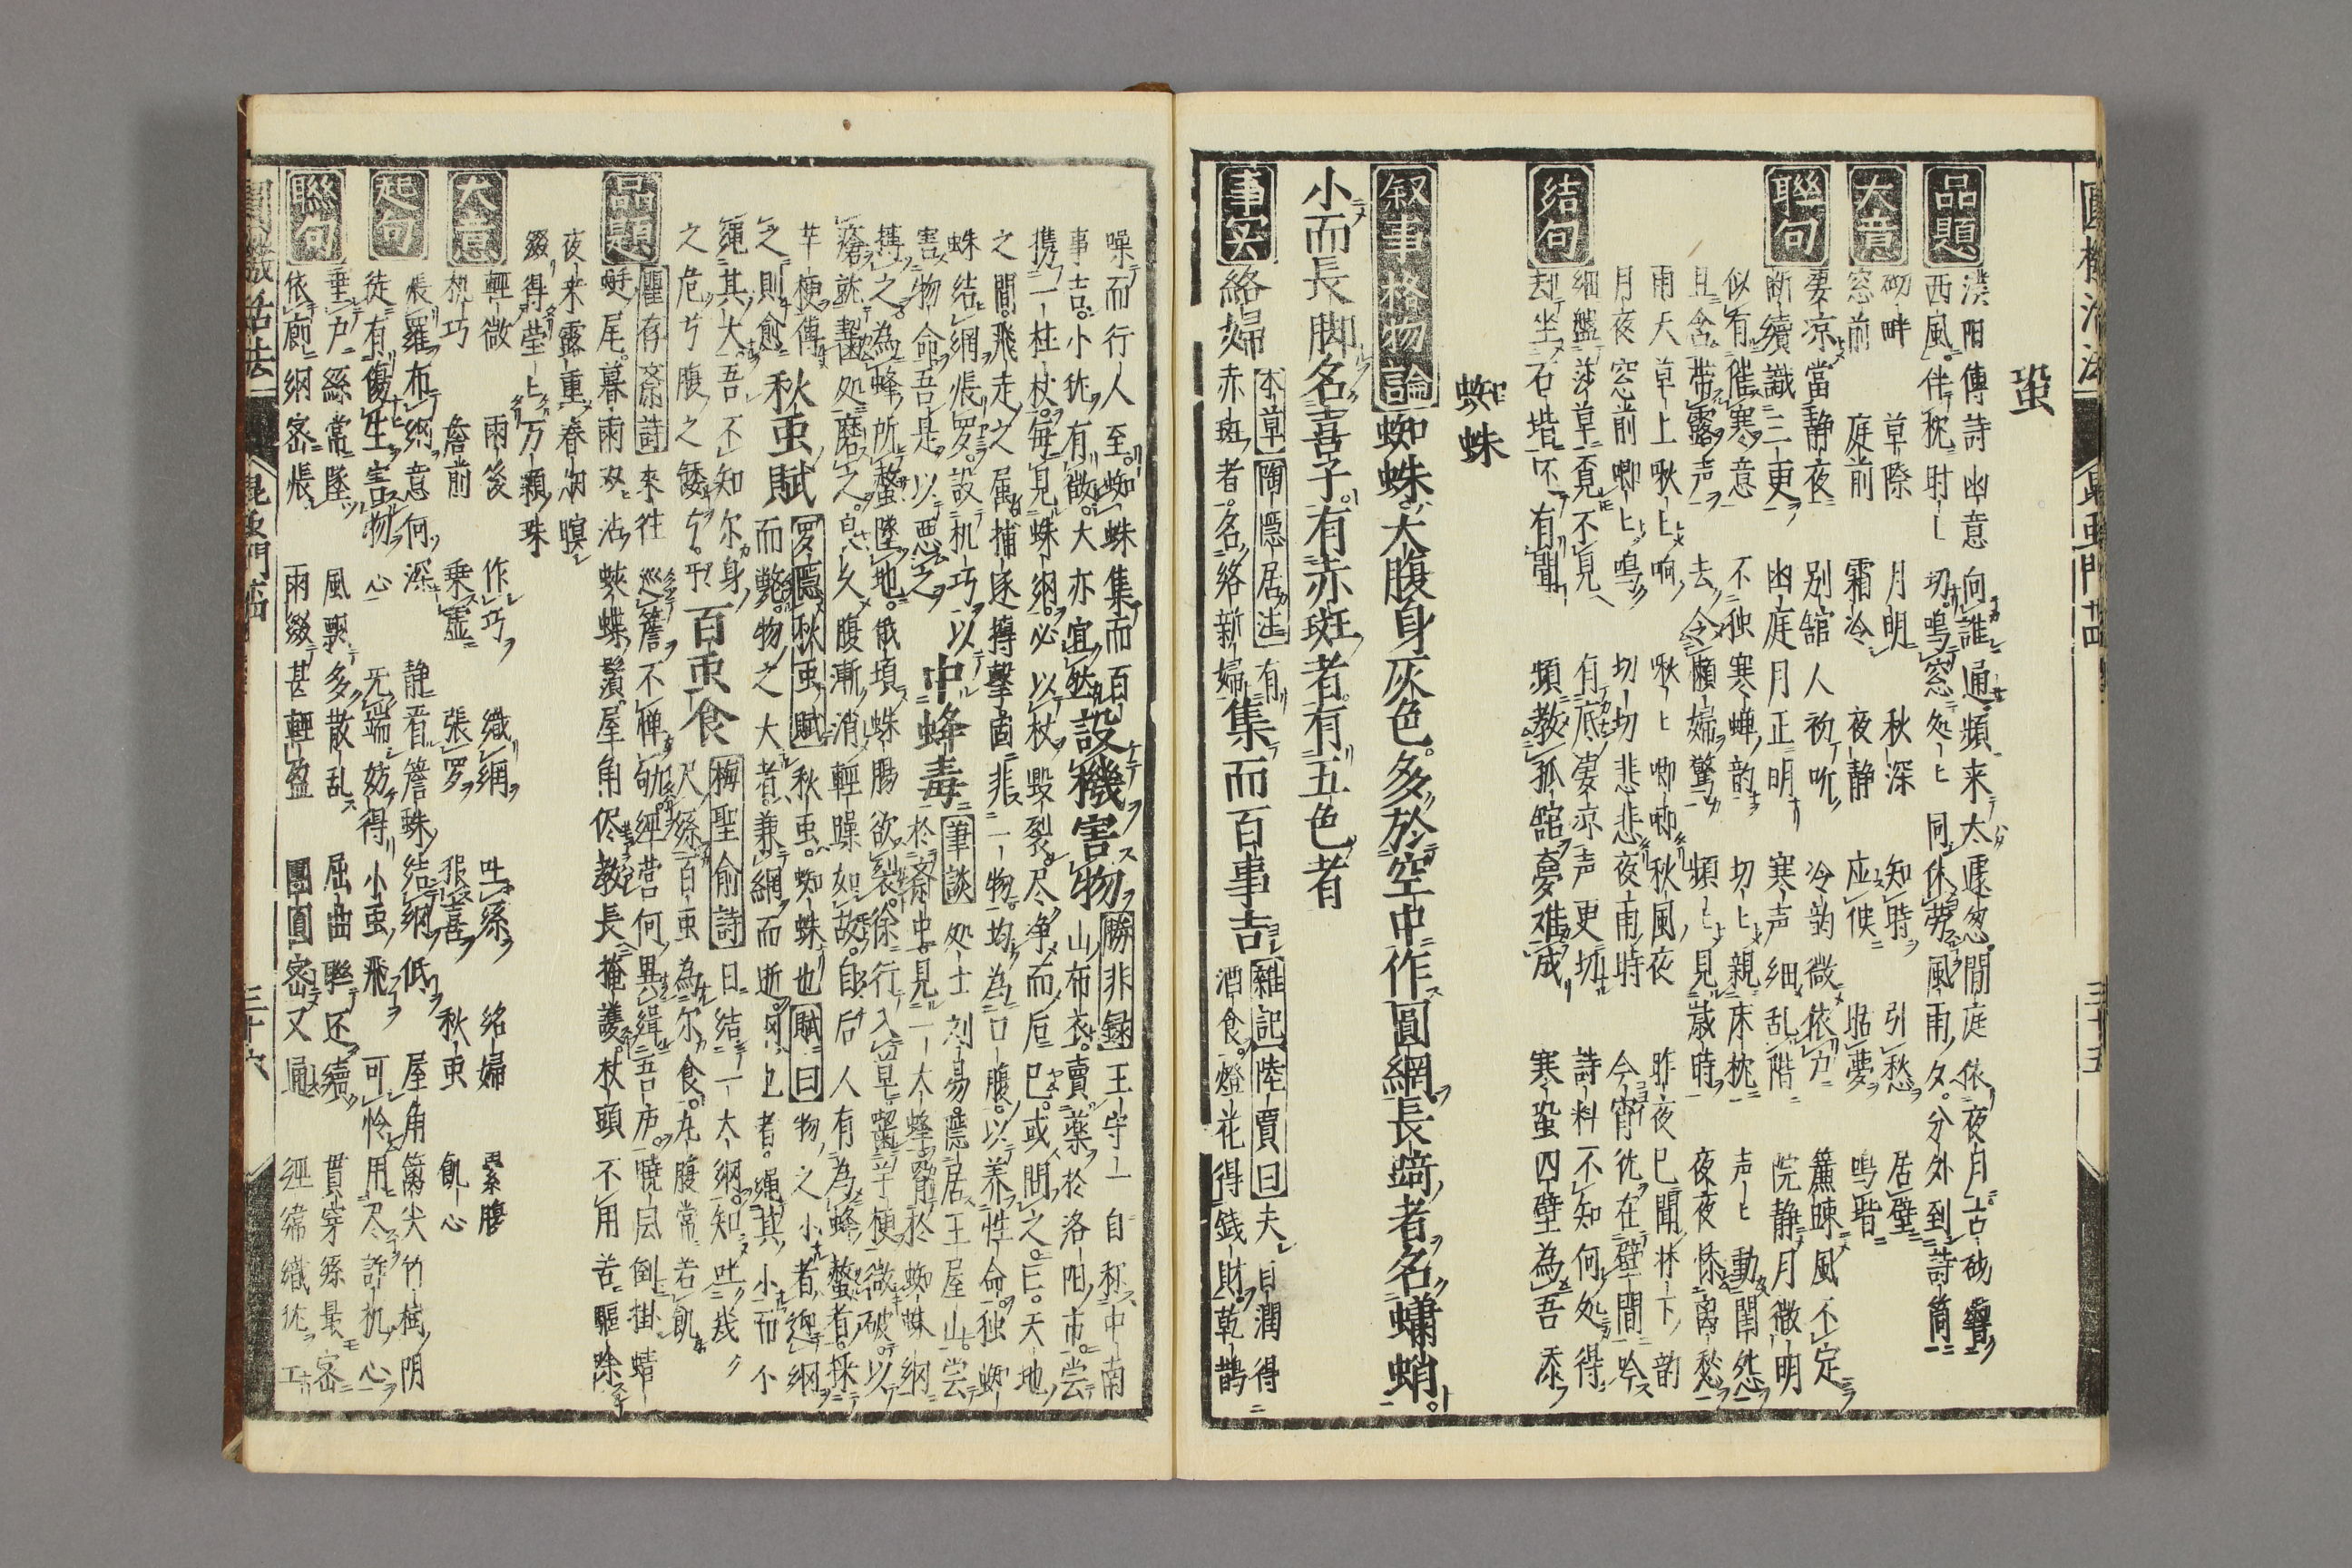 蛩
品題
濮陽傳詩幽意向誰通頻来太遽怱間庭依夜月古砌響
西風伴枕時切鳴窓処〻同休労風雨夕分外到詩筒
大意
砌畔 草際 月明 秋深 知時 引愁 居壁
窓前 庭前 霜冷 夜静 应候 鳴階
聯句
凄凉當静夜 别舘人初听 冷韵微依户 簾踈風不定
断續識三更 幽庭月正明 寒声細乱階 院静月微明
似有催寒意 不使寒蝉韵 切〻親床枕 声〻動閨怨
且含帶露声 去令嬾婦驚 頻〻見歳時 夜夜惱离愁
雨天草上啾〻响 啾〻唧唧秋風夜 昨夜已聞林下韵
月夜窓前唧〻鳴 切切悲悲夜雨時 今宵徃在壁間吟
細盤莎草覔不見 有底凄凉声更切 詩料不知何処得
却坐石堦还有聞 頻教孤舘夢难成 寒蛩四壁為吾添
結句
蜘蛛
叙事格物論
蜘蛛大腹身灰色多於空中作圓網長踦者名蠨蛸
小而長脚名喜子有赤斑者有五色者
事实
絡婦
赤斑者名絡新婦
本草陶隱居注有
集而百事吉
雜記陸賈曰夫目潤得
酒食燈花得錢財乾鵲
噪而行人至蜘蛛集而百
事吉小犹有徴大亦宜然
設機害物
勝非録王守一自称中南
山布衣賣薬於洛阳市尝
携一柱杖每見蛛網必以杖毀裂尽净而后已或問之曰天地
之間飛走之属捕逐摶擊固非一物均為口腹以养性命独蜘
蛛結網張罗設机巧以
害物命吾是以恶之
中蜂毒
筆談処士刘易隱居王屋山尝
於斎中見一大蜂罥於蜘蛛網
摶之為蜂所螫墜地俄頃蛛腸欲裂徐行入草齧芋梗微破以
瘡就齧処磨之良久腹漸消輕躁如故自后人有為蜂螫者採
芋梗傅
之則愈
秋䖝賦
罗隱秋䖝賦秋䖝蜘蛛也賦曰物之小者迎網
而斃物之大者兼網而逝
繩其大吾不知尔身
之危兮腹之餒兮
百䖝食
梅聖俞詩曰結一大網知吐幾
尺絲百䖝為尔食九腹常若飢
品題
瞿存斎詩來往巡簷不憚劬經营何異緝吾庐曉层倒掛蜻
蜓尾暮雨双沾蛺蝶鬚屋角侭教長掩護杖頭不用苦驅除
夜来露重春如暝
綴得莹〻万顆珠
大意
輕微 雨後 作巧 織網 吐絲 络婦 累腹
机巧 詹前 乗虚 張罗 报喜 秋䖝 飢心
起句
張羅布網意何深 静看簷蛛結網低 屋角篱尖竹樹阴
徒有傷生害物心 旡端妨得小䖝飛 可怜用尽許机心
聯句
垂户絲常墜 風飄多散乱 屈曲聨还續 貫穿絲最密
依廊網密張 雨綴甚輕盈 團圓密又通 經緯織犹工